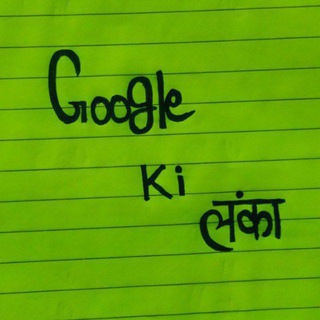 Google
Ki
लंका